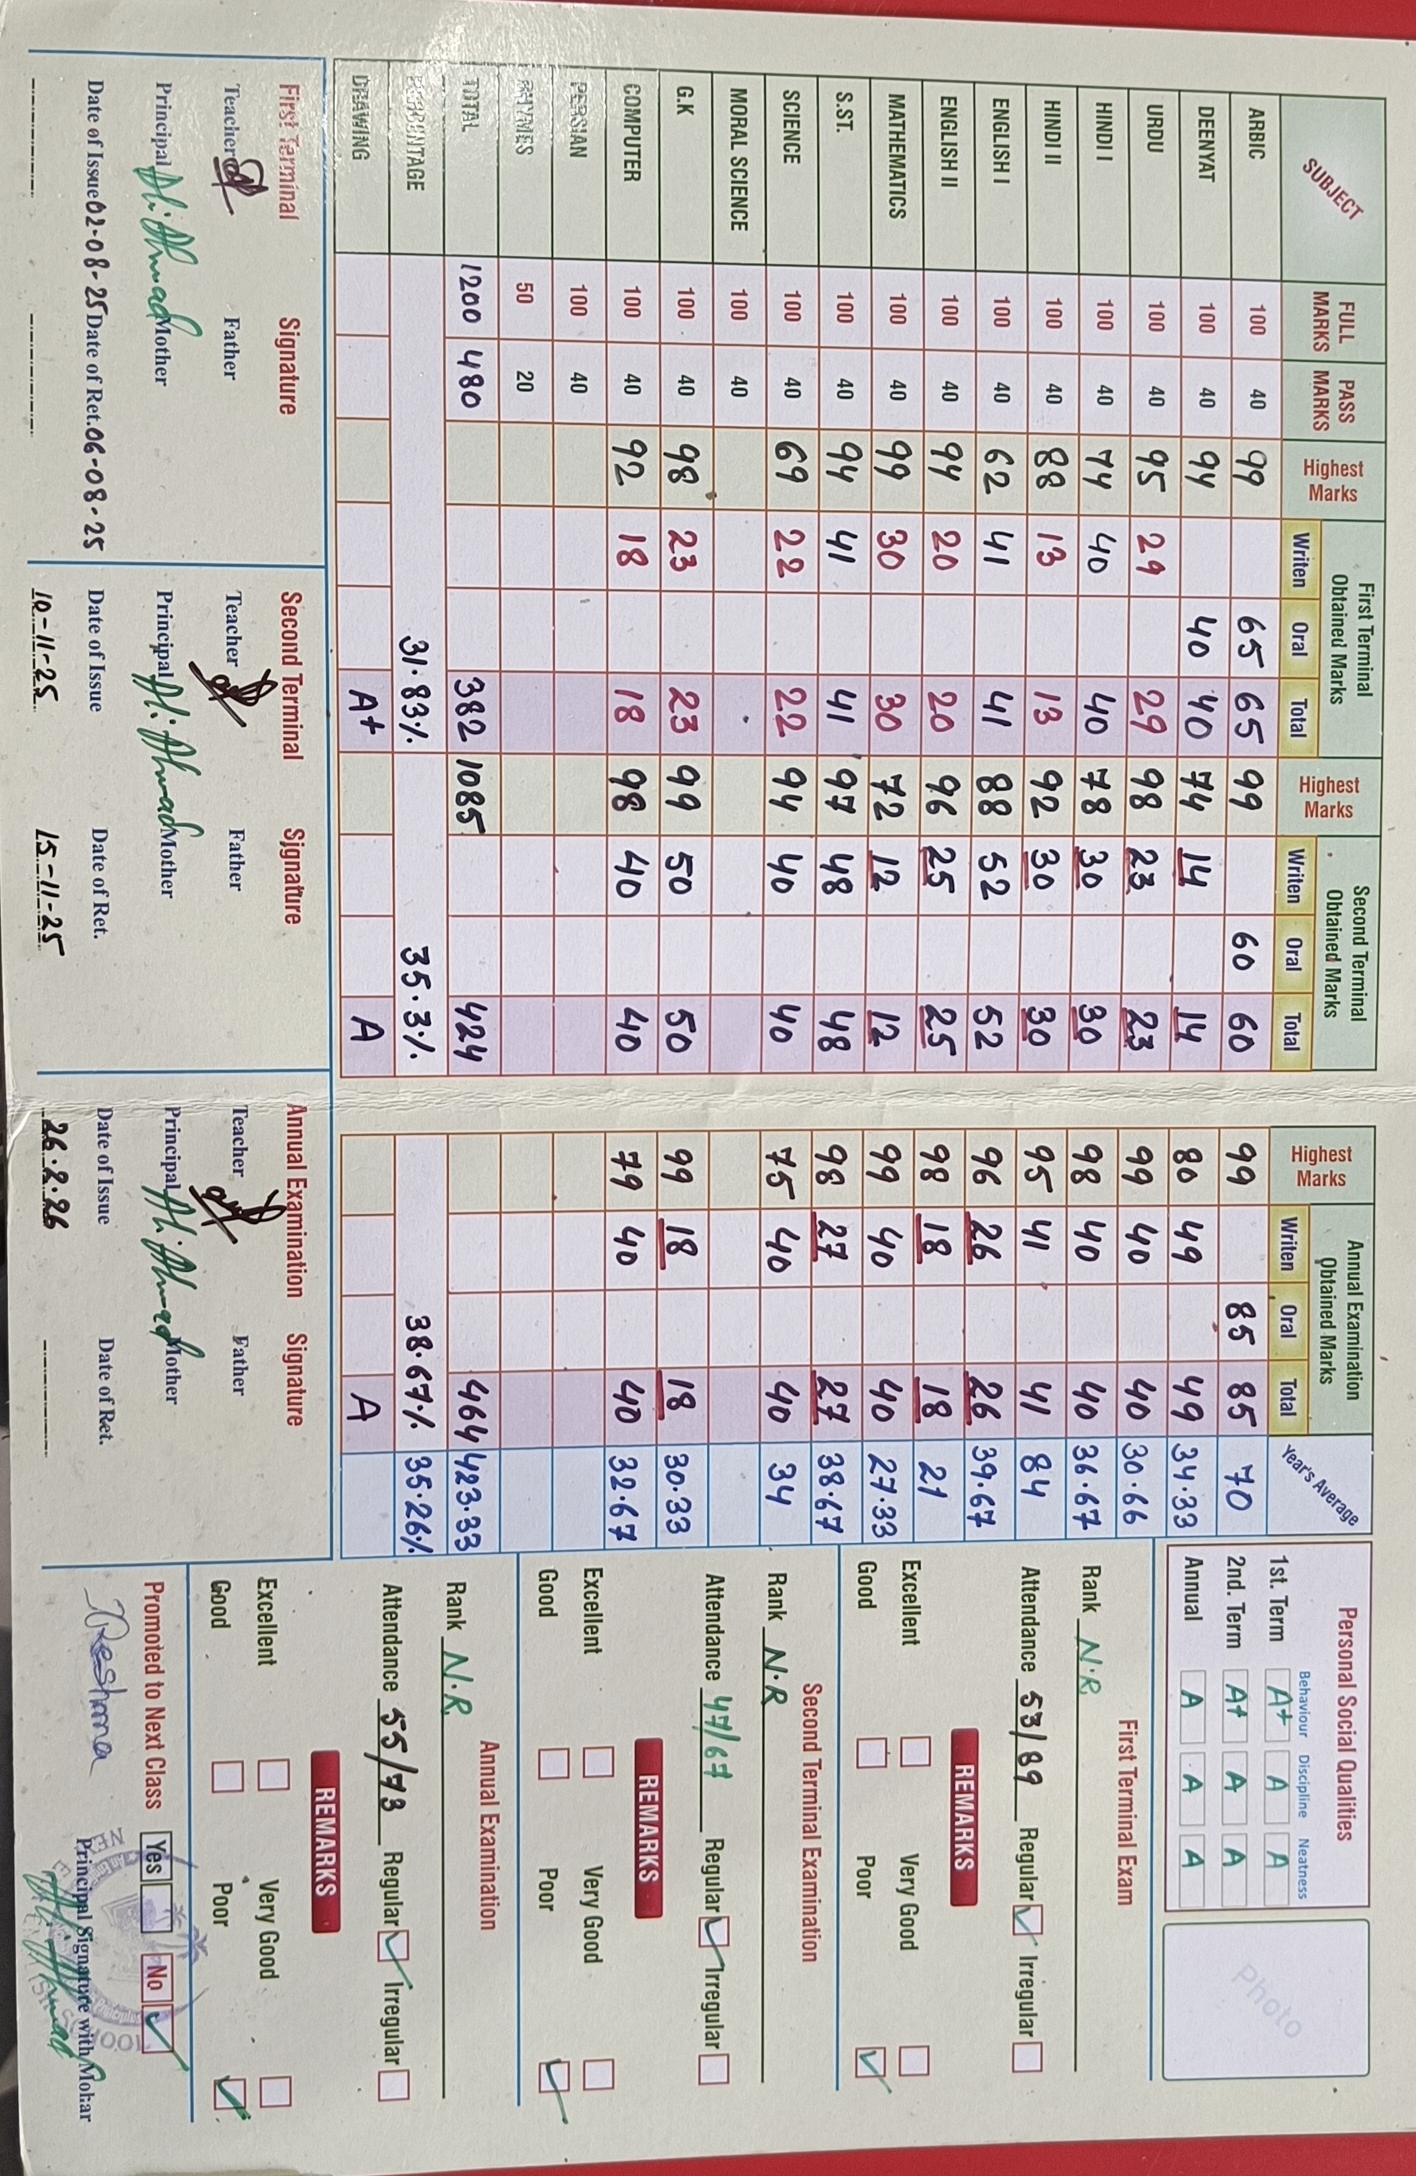 SUBJECT FULL MARKS PASS MARKS Highest Marks First Terminal Obtained Marks Writen Oral Total Highest Marks Second Terminal Obtained Marks Writen Oral Total Highest Marks Annual Examination Obtained Marks Writen Oral Total Year's Average
ARBIC 100 40 99 65 65 99 60 60 99 85 85 70
DEENYAT 100 40 94 40 40 74 14 14 80 49 49 34.33
URDU 100 40 95 29 29 98 23 23 99 40 40 30.66
HINDI I 100 40 74 40 40 78 30 30 98 40 40 36.67
HINDI II 100 40 88 13 13 92 30 30 95 41 41 84
ENGLISH I 100 40 62 41 41 88 52 52 96 26 26 39.67
ENGLISH II 100 40 94 20 20 96 25 25 98 18 18 21
MATHEMATICS 100 40 99 30 30 72 12 12 99 40 40 27.33
S.ST. 100 40 94 41 41 97 48 48 98 27 27 38.67
SCIENCE 100 40 69 22 22 94 40 40 75 40 40 34
MORAL SCIENCE 100 40
G.K 100 40 98 23 23 99 50 50 99 18 18 30.33
COMPUTER 100 40 92 18 18 98 40 40 79 40 40 32.67
PERSIAN 100 40
RHYMES 50 20
TOTAL 1200 480 382 1085 424 464 423.33
PERCENTAGE 31.83% 35.3% 38.67% 35.26%
DRAWING A+ A A
First Terminal Signature
Teacher Father
Principal Ali Ahmad Mother
Date of Issue 02-08-25 Date of Ret. 06-08-25
Second Terminal Signature
Teacher Father
Principal Ali Ahmad Mother
Date of Issue Date of Ret.
10-11-25 15-11-25
Annual Examination Signature
Teacher Father
Principal Ali Ahmad Mother
Date of Issue Date of Ret.
26.2.26
Personal Social Qualities
Behaviour Discipline Neatness
1st. Term A+ A A
2nd. Term A+ A A
Annual A A A
Photo
First Terminal Exam
Rank N.R
Attendance 53/89 Regular Irregular
REMARKS
Excellent Very Good
Good Poor
Second Terminal Examination
Rank N.R
Attendance 47/67 Regular Irregular
REMARKS
Excellent Very Good
Good Poor
Annual Examination
Rank N.R
Attendance 55/73 Regular Irregular
REMARKS
Excellent Very Good
Good Poor
Promoted to Next Class Yes No
Reshma
Principal Signature with Mohar
Ali Ahmad